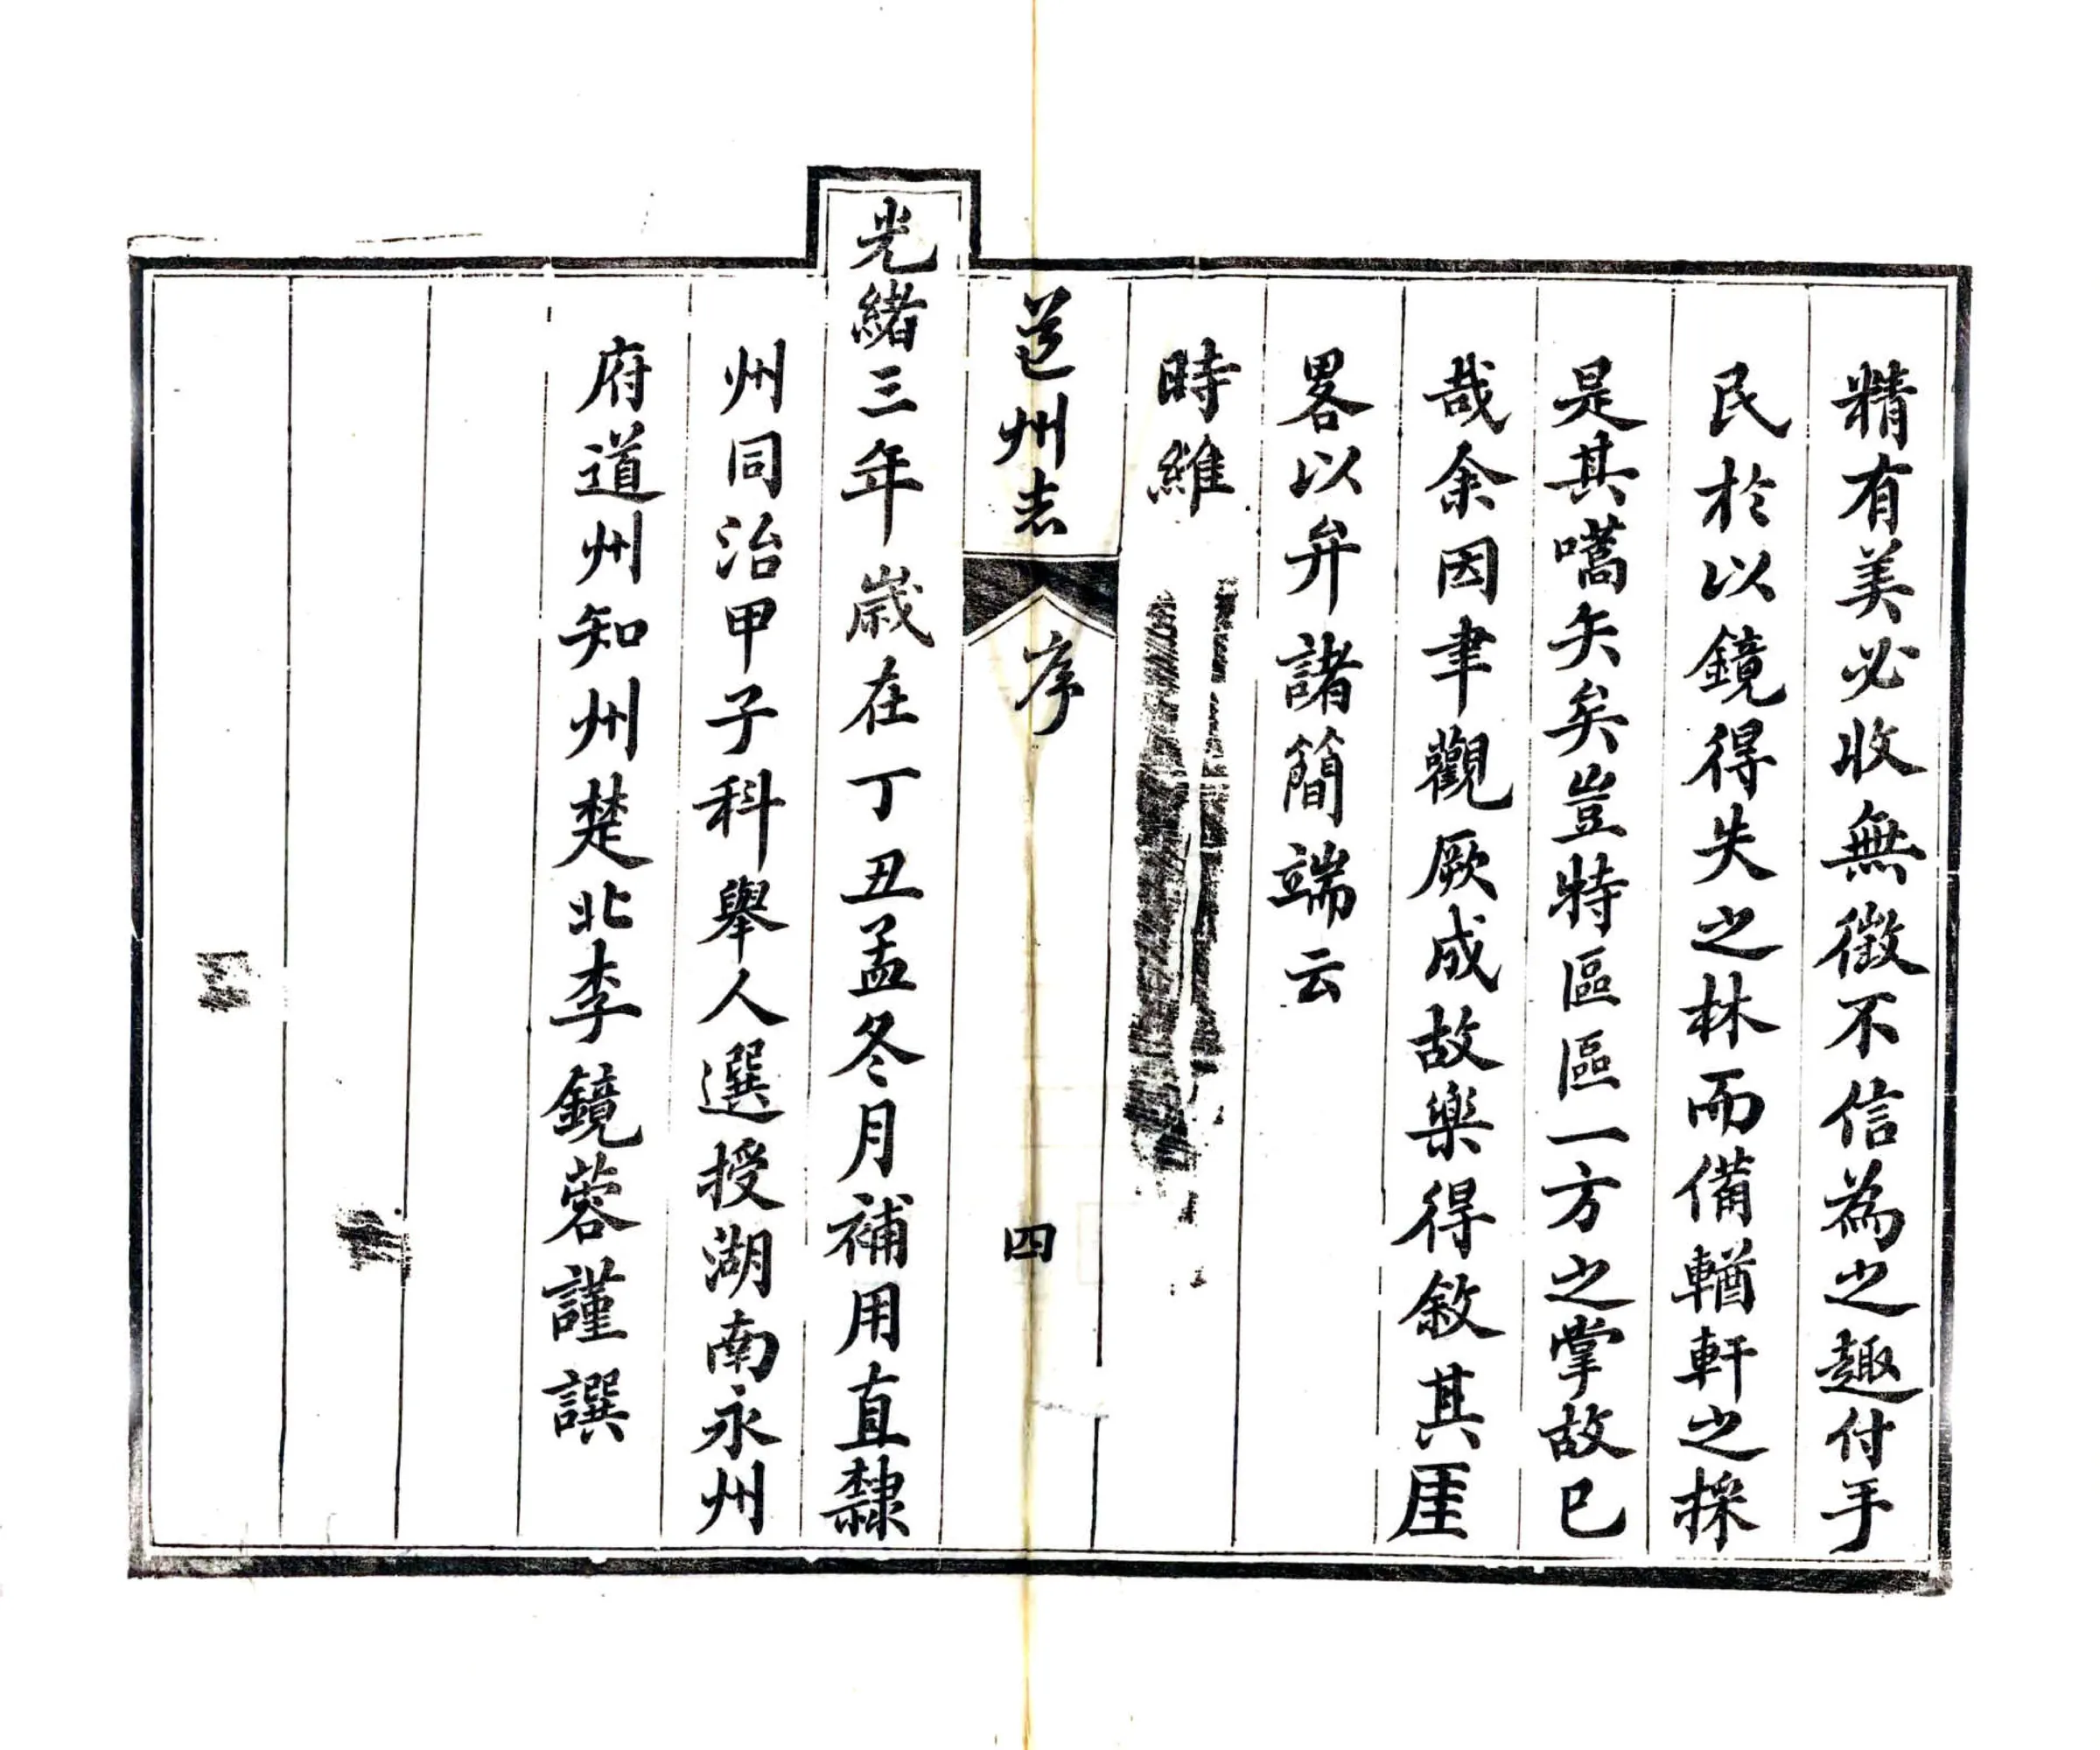 精有美必收無徵不信為之趣付手
民於以鏡得失之林而備輶軒之採
是其嚆矢矣豈特區區一方之掌故已
哉余因聿觀厥成故樂得敘其厓
畧以弁諸簡端云
時維
道州志 序 四
光緒三年歲在丁丑孟冬月補用直隸
州同治甲子科舉人選授湖南永州
府道州知州楚北李鏡蓉謹譔